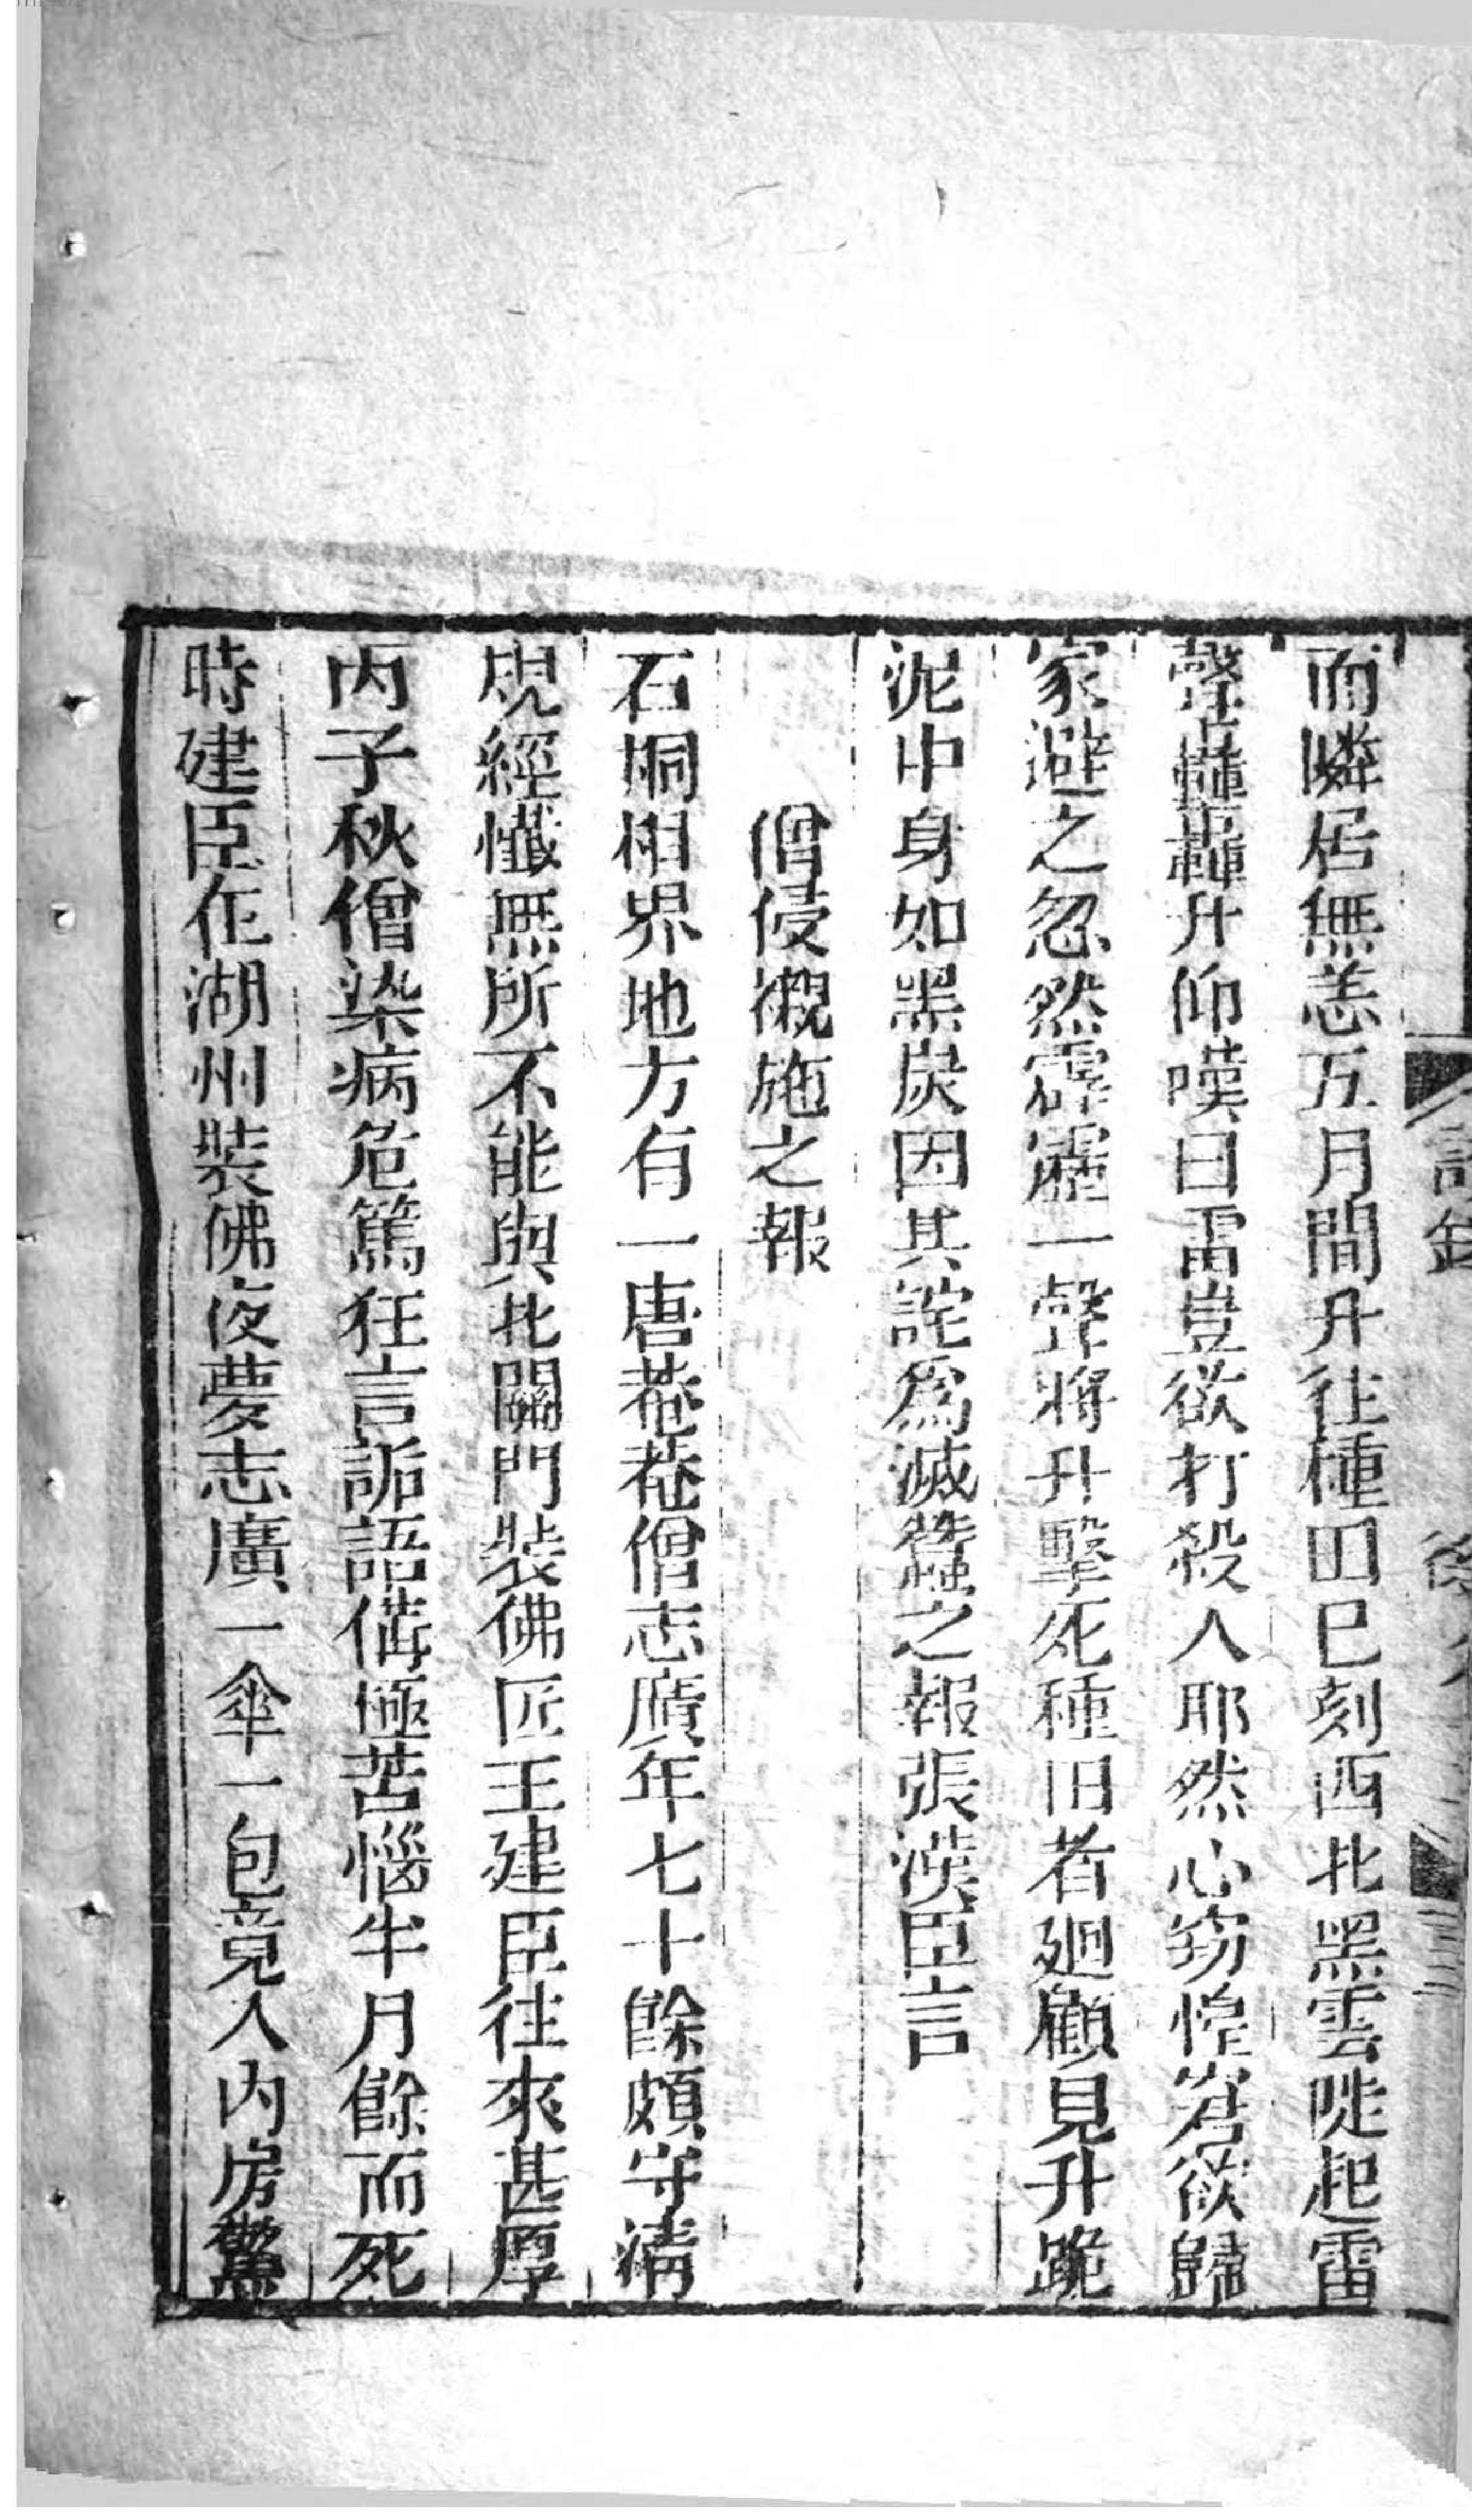 而隣居無恙五月間升往種田巳刻西北黑雲陡起雷
聲轟轟升仰嘆曰雷豈欲打殺人耶然心窃惶窘欲歸
家避之忽然霹靂一聲將升擊死種田者廻顧見升跪
泥中身如黑炭因共詫爲滅蠶之報張漢臣言
僧侵襯施之報
石桐相界地方有一唐菴菴僧志廣年七十餘頗守淸
規經懺無所不能與北關門裝佛匠王建臣往來甚厚
丙子秋僧染病危篤狂言詬語俻極苦惱半月餘而死
時建臣在湖州裝佛夜夢志廣一傘一包竟入内房驚